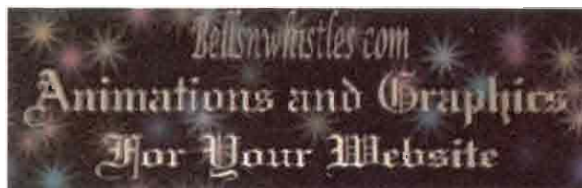 Bellsnwhistles.com
Animations and Graphics
For Your Website